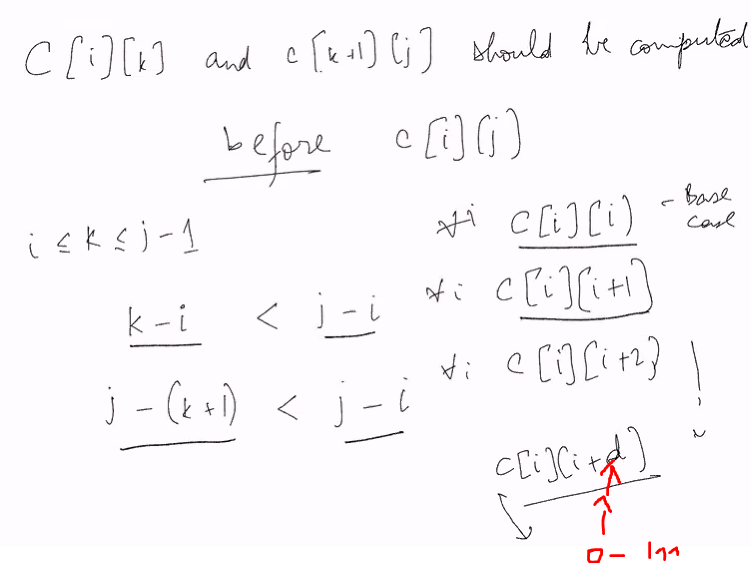 C[i][k] and c[k+1][j] should be computed
before c[i][j]
i ≤ k ≤ j-1
k-i < j-i
j-(k+1) < j-i
∀i C[i][i] - Base case
∀i C[i][i+1]
∀i C[i][i+2]
C[i][i+d]
0-